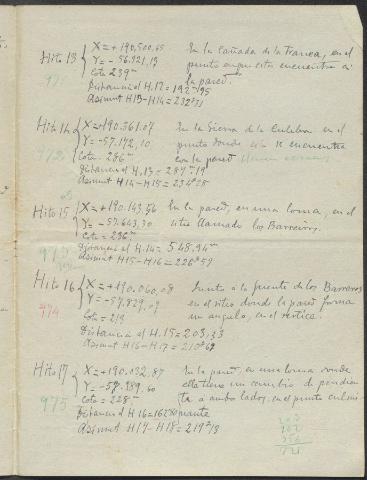 Hito 13
X=+190,500,65
Y=-56.921,13
Cota 239m
Distancia al H.12=192m95
Azimut H13-H14=232g31
En la Cañada de la Tranca, en el
punto en que esta encuentra á
la pared.
Hito 14
972
X=+190.361.07
Y=-57.172,10
Cota=286m
Distancia al H.13=287m19
Azimut H14-H15=234g28
En la Sierra de la Culebra en el
punto donde esta se encuentra
con la pared
Hito 15
973
X=+190.143,56
Y=-57.643.30
Cota=236m
Distancia al H.14=548.94m
Azimut H15-H16=226g59
En la pared, en una loma, en el
sitio llamado los Barreiros.
Hito 16
974
X=+190.060,08
Y=-57.829,09
Cota=213
Distancia al H.15=203,33
Azimut H16-H17=210g69
Junto a la fuente de los Barreros
en el sitio donde la pared forma
un angulo, en el vertice.
Hito 17
975
X=+190.032,87
Y=-57.989,60
Cota=228m
Distancia al H16=162m
Azimut H17-H18=219g13
En la pared, en una loma donde
esta tiene un cambio de pendien
te a ambos lados, en el punto culmi-
nante